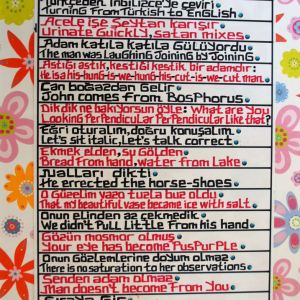 Türkçeden İngilizce'ye çeviri
Turning From Turkish to English
Acele işe Şeytan karışır
Urinate Quickly, satan mixes
Adam katıla katıla Gülüyordu
The man was laughing Joining by Joining
Astığı astık, kestiği kestik bir adamdır;
He is a his-hung-is-we-hung-his-cut-is-we-cut man.
Can boğazdan Gelir
John comes From Bosphorus
Dik dik ne bakıyorsun öyle? What are You
Looking PerPendicular PerPendicular Like that?
Eğri oturalım, doğru konuşalım.
Let's sit italic, Let's talk correct.
Ekmek elden, su Gölden
Bread From hand, water From Lake
Nalları dikti
He errected the horse-shoes
O Güzelim vazo tuzla buz oldu
That my beautiful vase became ice with salt.
Onun elinden az çekmedik
We didn't Pull Little From his hand
Gözün mosmor olmuş
Your eye has become PusPurPle
Onun Gözlemlerine doyum olmaz
There is no saturation to her observations
Senden adam olmaz
Man doesn't become From You
Sıraya Gir